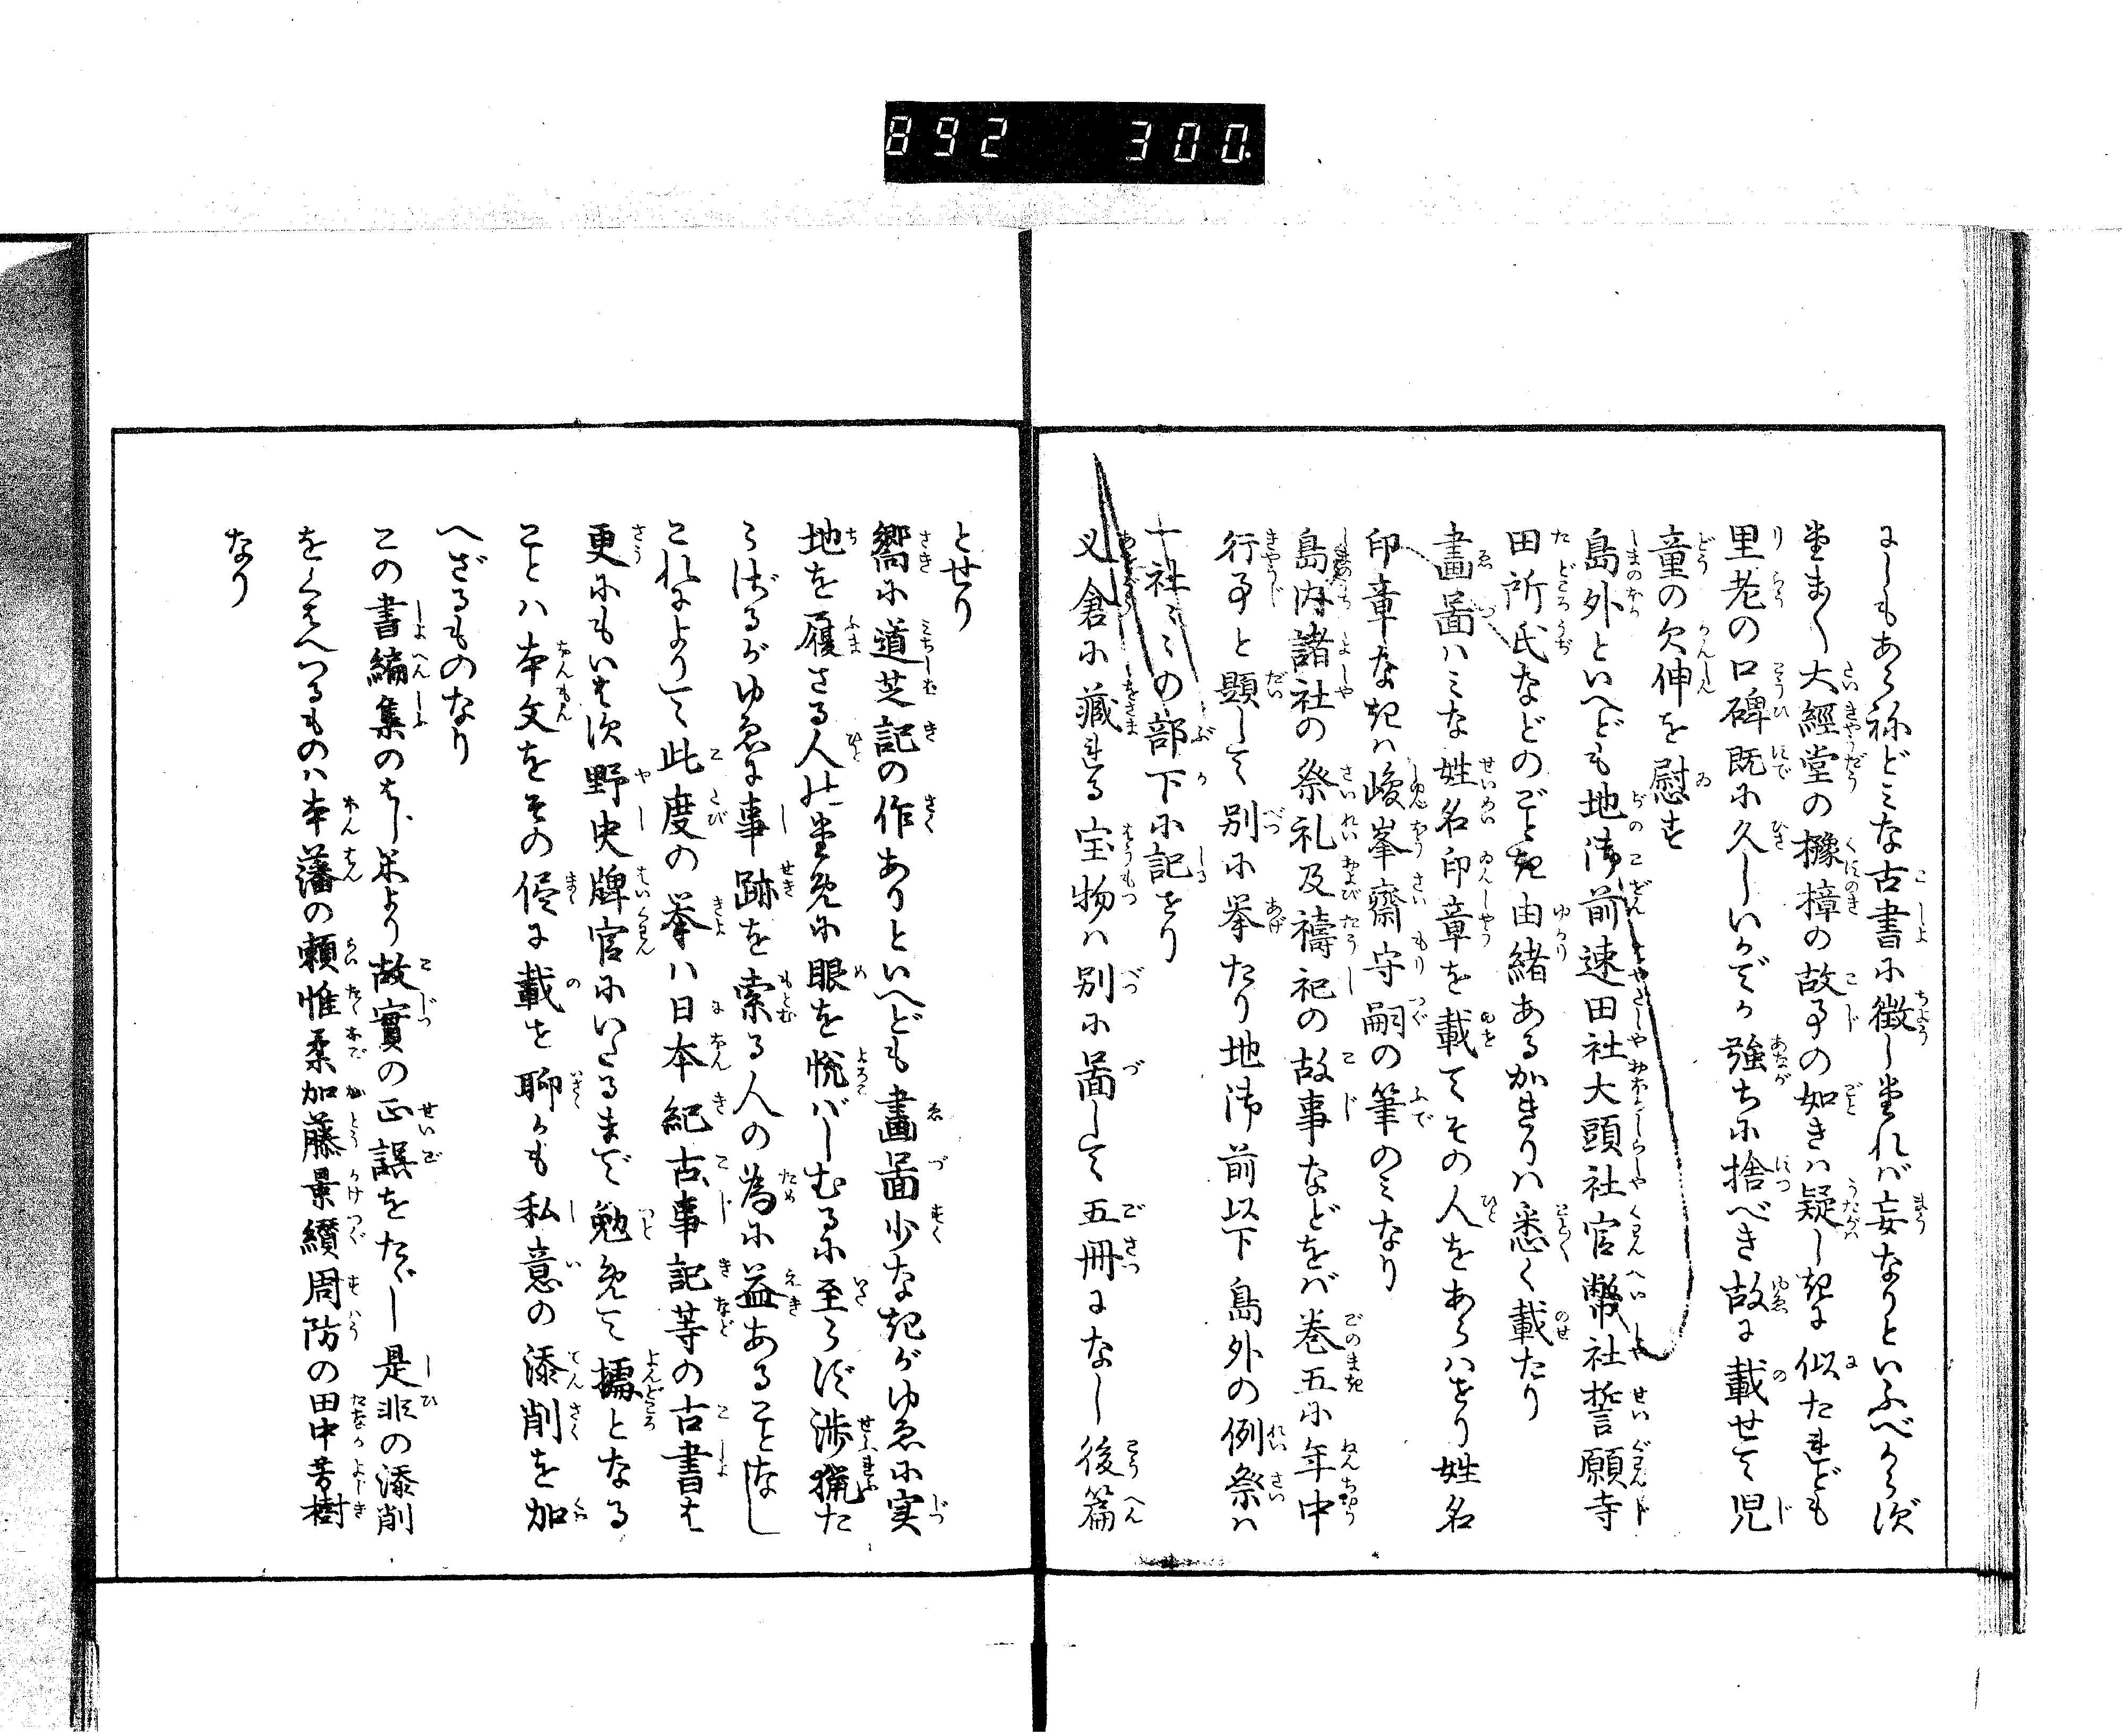 892 300.
にしもあらねどみな古書に徴し坐れば妄なりといふべからず
坐まく大經堂の櫲樟の故事の如きは疑しきに似たれども
里老の口碑既に久しいかでか強ちに捨べき故に載せて児
童の欠伸を慰す
島外といへども地御前速田社大頭社官幣社誓願寺
田所氏などのごとき由緒あるかぎりは悉く載たり
畫圖はみな姓名印章を載てその人をあらはせり姓名
印章なきは峻峯齋守嗣の筆のみなり
島内諸社の祭礼及禱祀の故事などをば巻五に年中
行事と題して別に挙たり地御前以下島外の例祭は
一社々々の部下に記せり
又倉に藏れる宝物は別に圖して五冊になし後篇
とせり
嚮に道芝記の作ありといへども畫圖少なきがゆゑに実
地を履ざる人の坐ながらに眼を悦ばしむるに至らず渉猟た
らざるがゆゑに事跡を索る人の為に益あることなし
これによりて此度の挙は日本紀古事記等の古書は
更にもいはず野史牌官にいたるまで勉めて據となる
ことは本文をその侭に載せ聊かも私意の添削を加
へざるものなり
この書編集のはじめより故實の正誤をたゞし是非の添削
をくはへつるものは本藩の頼惟柔加藤景纉周防の田中芳樹
なり